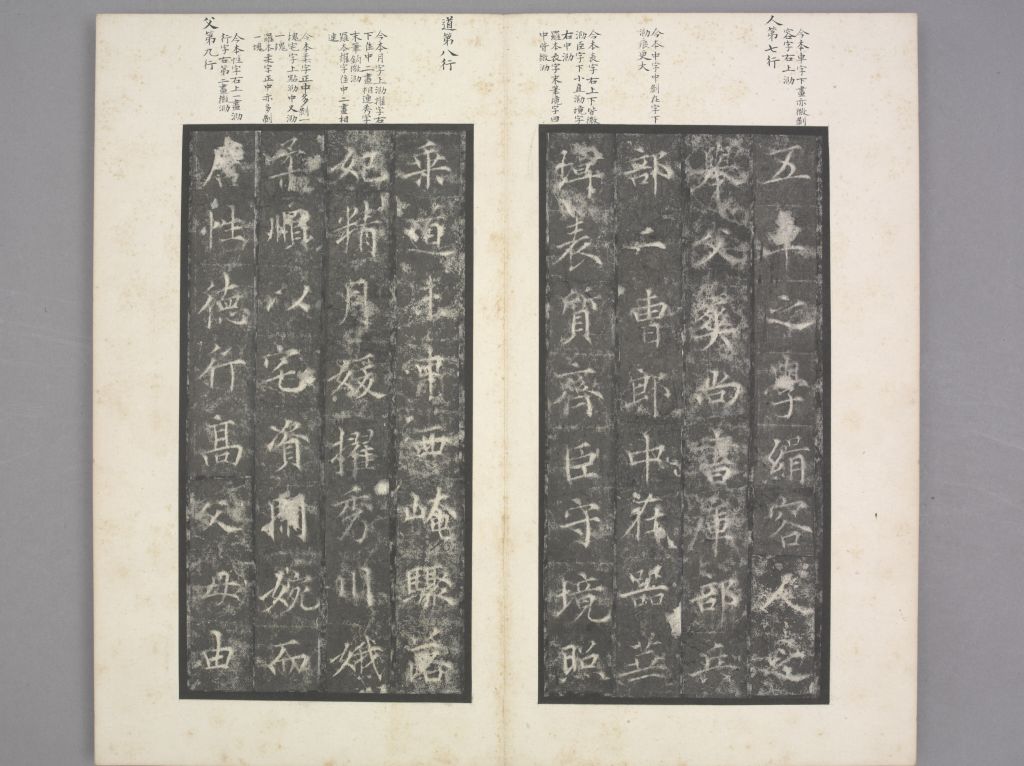 人第七行
今本車字下畫亦微剝
容字右上泐
今本中字中剝在字下
泐痕更大
今本表字右上下皆微
泐臣字下小直泐境字
右中泐
羅本表字末筆境字四
中皆微泐
五車之學絹容人之
譽父奭尚書庫部兵
部二曹郎中器並
璋表質齊臣守境照
道第八行
今本月字上泐擢字右
下隹中二畫相連秀字
末筆鈎微泐
羅本擢字隹中二畫相
連
今本柔字正中多剝一
塊宅字上點泐中又泐
一塊
羅本柔字正中亦多剝
一塊
父第九行
今本性字右上一畫泐
行字右第二畫微泐
乘道西崦驟落
妃精月媛擢秀川娥
柔順以宅資閑婉而
居性德行高父母由